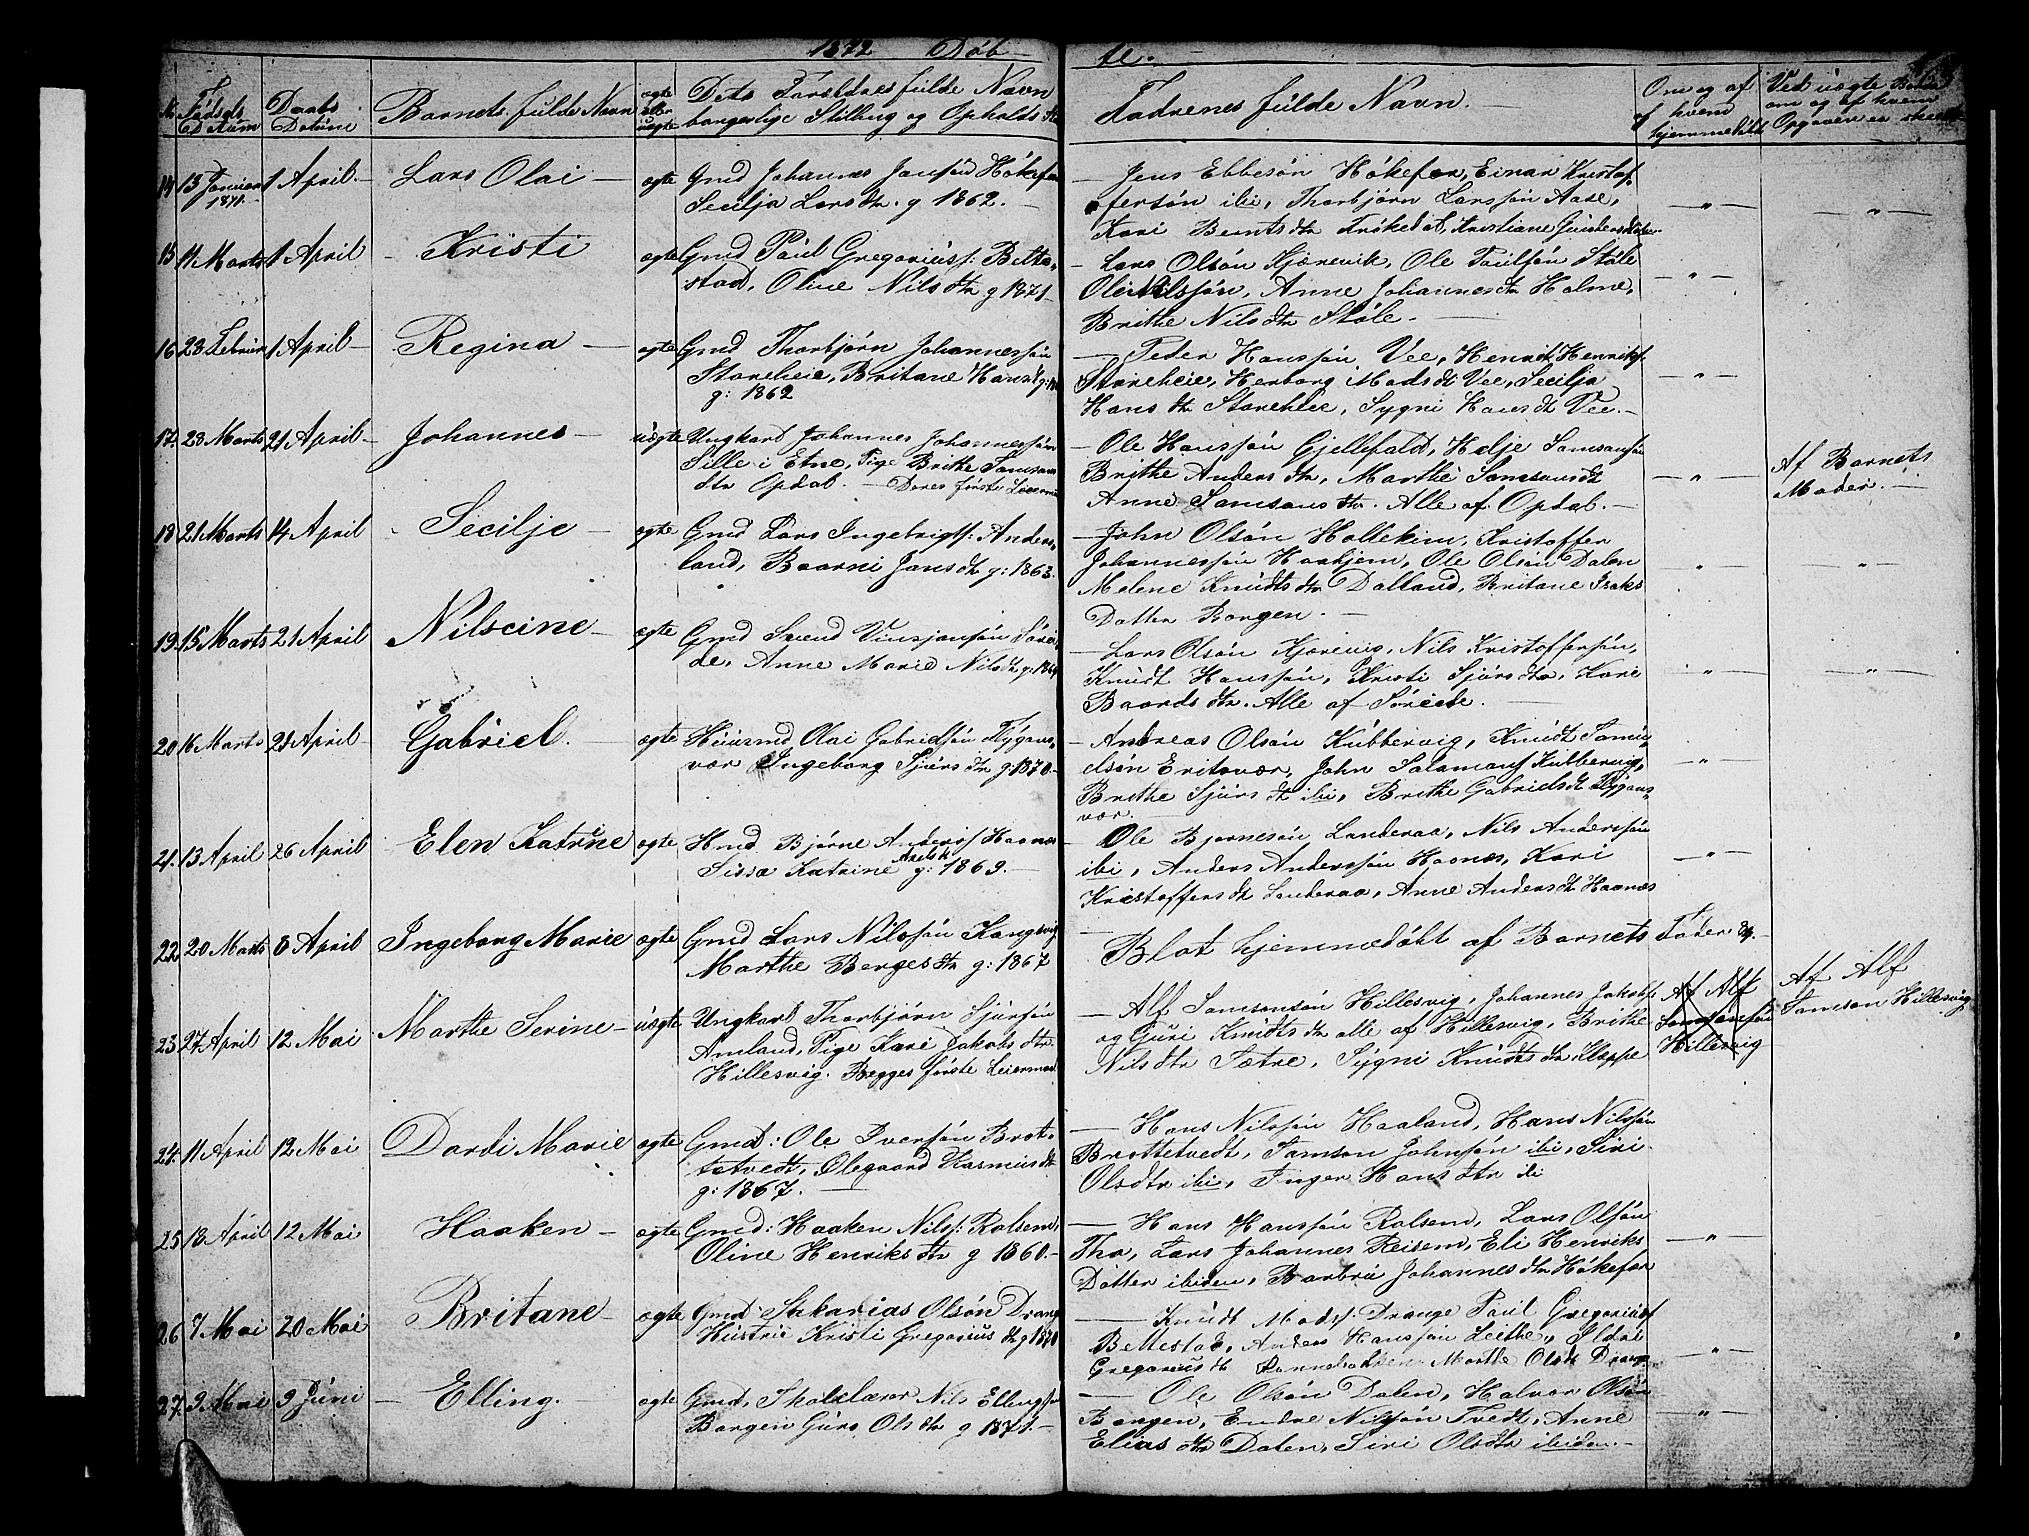 1872 Döb
te.
No Födsels Datum
Daabs Datum
Barnets fulde Navn
ægte eller uægte
Dets Forældres fulde Navn
borgerlige Stilling og Opholds St
Fadrenes fulde Navn.
Om og af hvem hjemmedöbt
Ved uægte Börn om og af hvem Opgaven er skeet
14 13 Januar 1871. 1 April. Lars Olai ægte Gmd Johannes Jansön Hökefor
Secilja Larsdtr. g 1862.
Jens Ebbesön Hökefor, Einar Kristof-
fersön ibi, Thorbjörn Larssön Aase,
Kari Berntsdtr Frökedal, Kristiane Gundersdatter
15 11 Marts 1 April Kristi ægte Gmd Paul Gregoriuss: Bette-
stad, Oline Nilsdtr g 1871
Lars Olsön Kjærevik, Ole Paulsön Stöle
Ole Nilssön, Anne Johannesdtr Holme,
Brithe Nilsdtr Stöle.
16 23 Februar 1 April Regina ægte Gmd Thorbjörn Johannessön
Storeheie, Britane Hansdt
g: 1862
Peder Hanssön Vee, Henrik Henriks.
Storeheie, Herborg Madsdt Vee, Secilja
Hansdtr Storeheie, Sygni Hansdt Vee.
17. 23 Marts 21 April Johannes uægte Ungkarl Johannes Johannessön
Sille i Etne, Pige Brithe Samsons
dtr Opdal. Deres förste Leierm
Ole Hanssön Gjellefald, Helje Samsonsön
Brithe Andersdtr, Marthe Samsonsdt
Anne Samsonsdtr. Alle af Opdal.
Af Barnets
Moder.
18 21 Marts 14 April Secilje ægte Gmd Lars Ingebrigts: Anders-
land, Baarni Jansdt g: 1863.
John Olsön Holtekim, Kristoffer
Johannessön Haahjem, Ole Olsön Dalen
Melene Knudtsdtr Dalland, Britane Isaks
Datter Borgen.
19. 15 Marts 21 April Nilscine ægte Gmd Svend Vinsjansön Sörei-
de, Anne Marie Nilsdt g: 1864
Lars Olsön Kjærevig, Nils Kristoffersön,
Knudt Hanssön, Kristi Sjursdtr, Kari
Baardsdtr. Alle af Söreide.
20 16 Marts 21 April Gabriel. ægte Huusmd Olai Gabrielsön Flygans-
vær Ingeborg Sjursdtr g: 1870.
Andreas Olsön Kubbervig, Knudt Samu-
elsön Eritsvær, John Salamons Kubbervig,
Brithe Sjursdt ibi, Brithe Gabrielsdt Flygans-
vær.
21. 13 April 26 April Elen Katrine ægte Hmd Bjørne Anderss Haanes
Sissa Katrine g: 1869.
Ole Bjørnesön Landeraa, Nils Anderssön
ibi, Anders Anderssön Haanes, Kari
Kristoffersdt Landeraa, Anne Andersdt Haanes
22. 20 Marts 8 April Ingeborg Marie ægte Gmd Lars Nilssön Kangevig
Marthe Bergesdtr g: 1867
Blot hjemmedöbt af Barnets Fader
23 27 April 12 Mai Marthe Serine uægte Ungkarl Thorbjörn Sjursön
Amland, Pige Kari Jakobsdtr
Hillesvig. Begges förste Leiermaal
Alf Samsonsön Hillesvig, Johannes Jakobs:
og Guri Knudtsdtr alle af Hillesvig, Brithe
Nilsdtr Sætre, Sygni Knudtsdtr Kleppe
Af Alf
Samsonsön
Hillesvig
Af Alf
Samson Hillesvig
24. 11 April 12 Mai Dordi Marie ægte Gmd: Ole Iversön Brot-
tetvedt, Ølegaard Rasmusdt
g: 1867.
Hans Nilssön Haaland, Hans Nilssön
Brottetvedt, Samson Johnsön ibi, Siri
Olsdtr ibi, Inger Hansdtr ibi
25 18 April 12 Mai Haaken ægte Gmd: Haaken Nilss: Rolsem,
Oline Henriksdtr g 1860.
Hans Hanssön Rolsem, Lars Olsön
Tho, Lars Johannes Reisem, Eli Henriks
Datter ibiden, Barbru Johannesdtr Hökefor
26 7 Mai 20 Mai Britane ægte Gmd: Sakarias Olsön Drange
Hustrue Kristi Gregoriusdtr g 1870
Knudt Mads: Drange Paul Gregorius
Bettestad, Anders Hanssön Leithe, Sldri
Gregoriusdt Rannebakken Marthe Olsdt Drange
27. 9 Mai 9 Juni Elling. ægte Gmd, Skolelærer Nils Ellings:
Borgen Guro Olsdtr g 1871.
Ole Olsön Dalen, Halvor Olsön
Borgen, Endre Nilssön Tvedt, Anne
Eliasdtr Dalen, Siri Olsdtr ibiden.